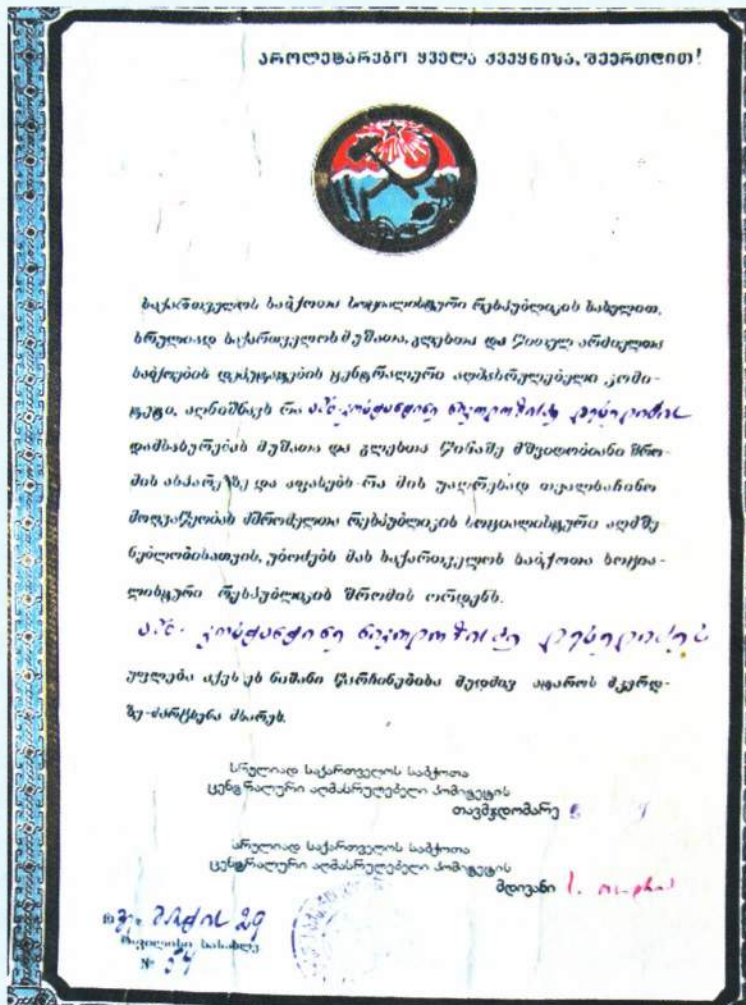 პროლეტარებო ყველა ქვეყნისა, შეერთდით!
საქართველოს საბჭოთა სოციალისტური რესპუბლიკის სახელით,
სრულიად საქართველოს მუშათა, გლეხთა და წითელ არმიელთა
საბჭოების დეპუტატების ცენტრალური აღმასრულებელი კომი-
ტეტი, აღნიშნავს რა ამხ. კონსტანტინე
დამსახურებას მუშათა და გლეხთა წინაშე მშვიდობიანი შრო-
მის ასპარეზზე და აფასებს რა მის უაღრესად თვალსაჩინო
მოღვაწეობას მშრომელთა რესპუბლიკის სოციალისტური აღმშე-
ნებლობისათვის, უბოძებს მას საქართველოს საბჭოთა სოცია-
ლისტური რესპუბლიკის შრომის ორდენს.
ამხ.
უფლება აქვს ეს ნიშანი წარჩინებისა მუდმივ ატაროს მკერდ-
ზე-მარცხენა მხარეს.
სრულიად საქართველოს საბჭოთა
ცენტრალური აღმასრულებელი კომიტეტის
თავმჯდომარე
სრულიად საქართველოს საბჭოთა
ცენტრალური აღმასრულებელი კომიტეტის
მდივანი
29
თბილისი სასახლე
№ 54